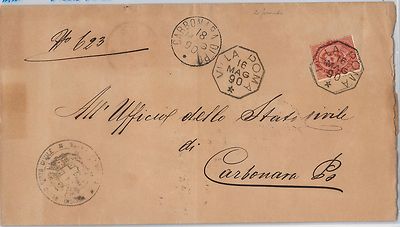 N° 623
CARBONARA DI PO
18
90
VILLA POMA
16
MAG
90
VILLA POMA
16
MAG
90
All' Ufficio dello Stato Civile
di
Carbonara Po